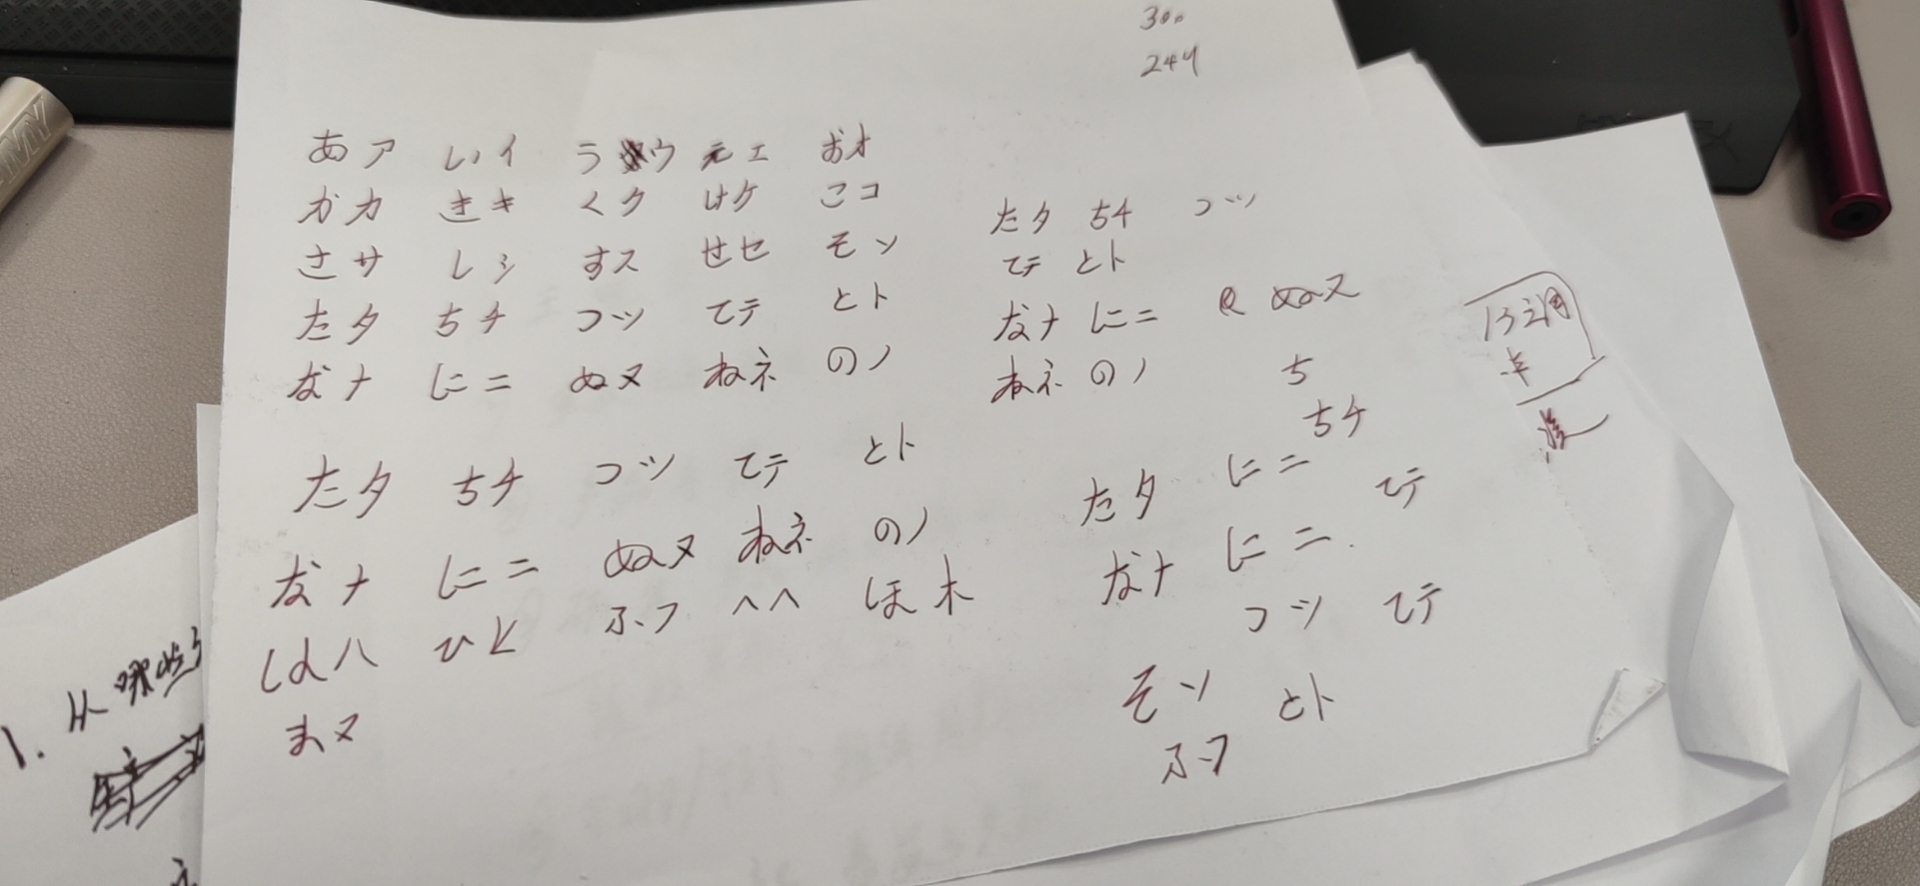 300
244
あア いイ うウ えエ おオ
かカ きキ くク けケ こコ
さサ しシ すス せセ そソ
たタ ちチ つツ てテ とト
なナ にニ ぬヌ ねネ のノ
たタ ちチ つツ てテ とト
なナ にニ ぬヌ ねネ のノ
はハ ひヒ ふフ へヘ ほホ
まヌ
たタ ちチ つツ
てテ とト
なナ にニ ぬヌ
ねネ のノ ち
ちチ
たタ にニ てテ
なナ にニ
つツ てテ
そソ とト
ふフ
1. 从哪些